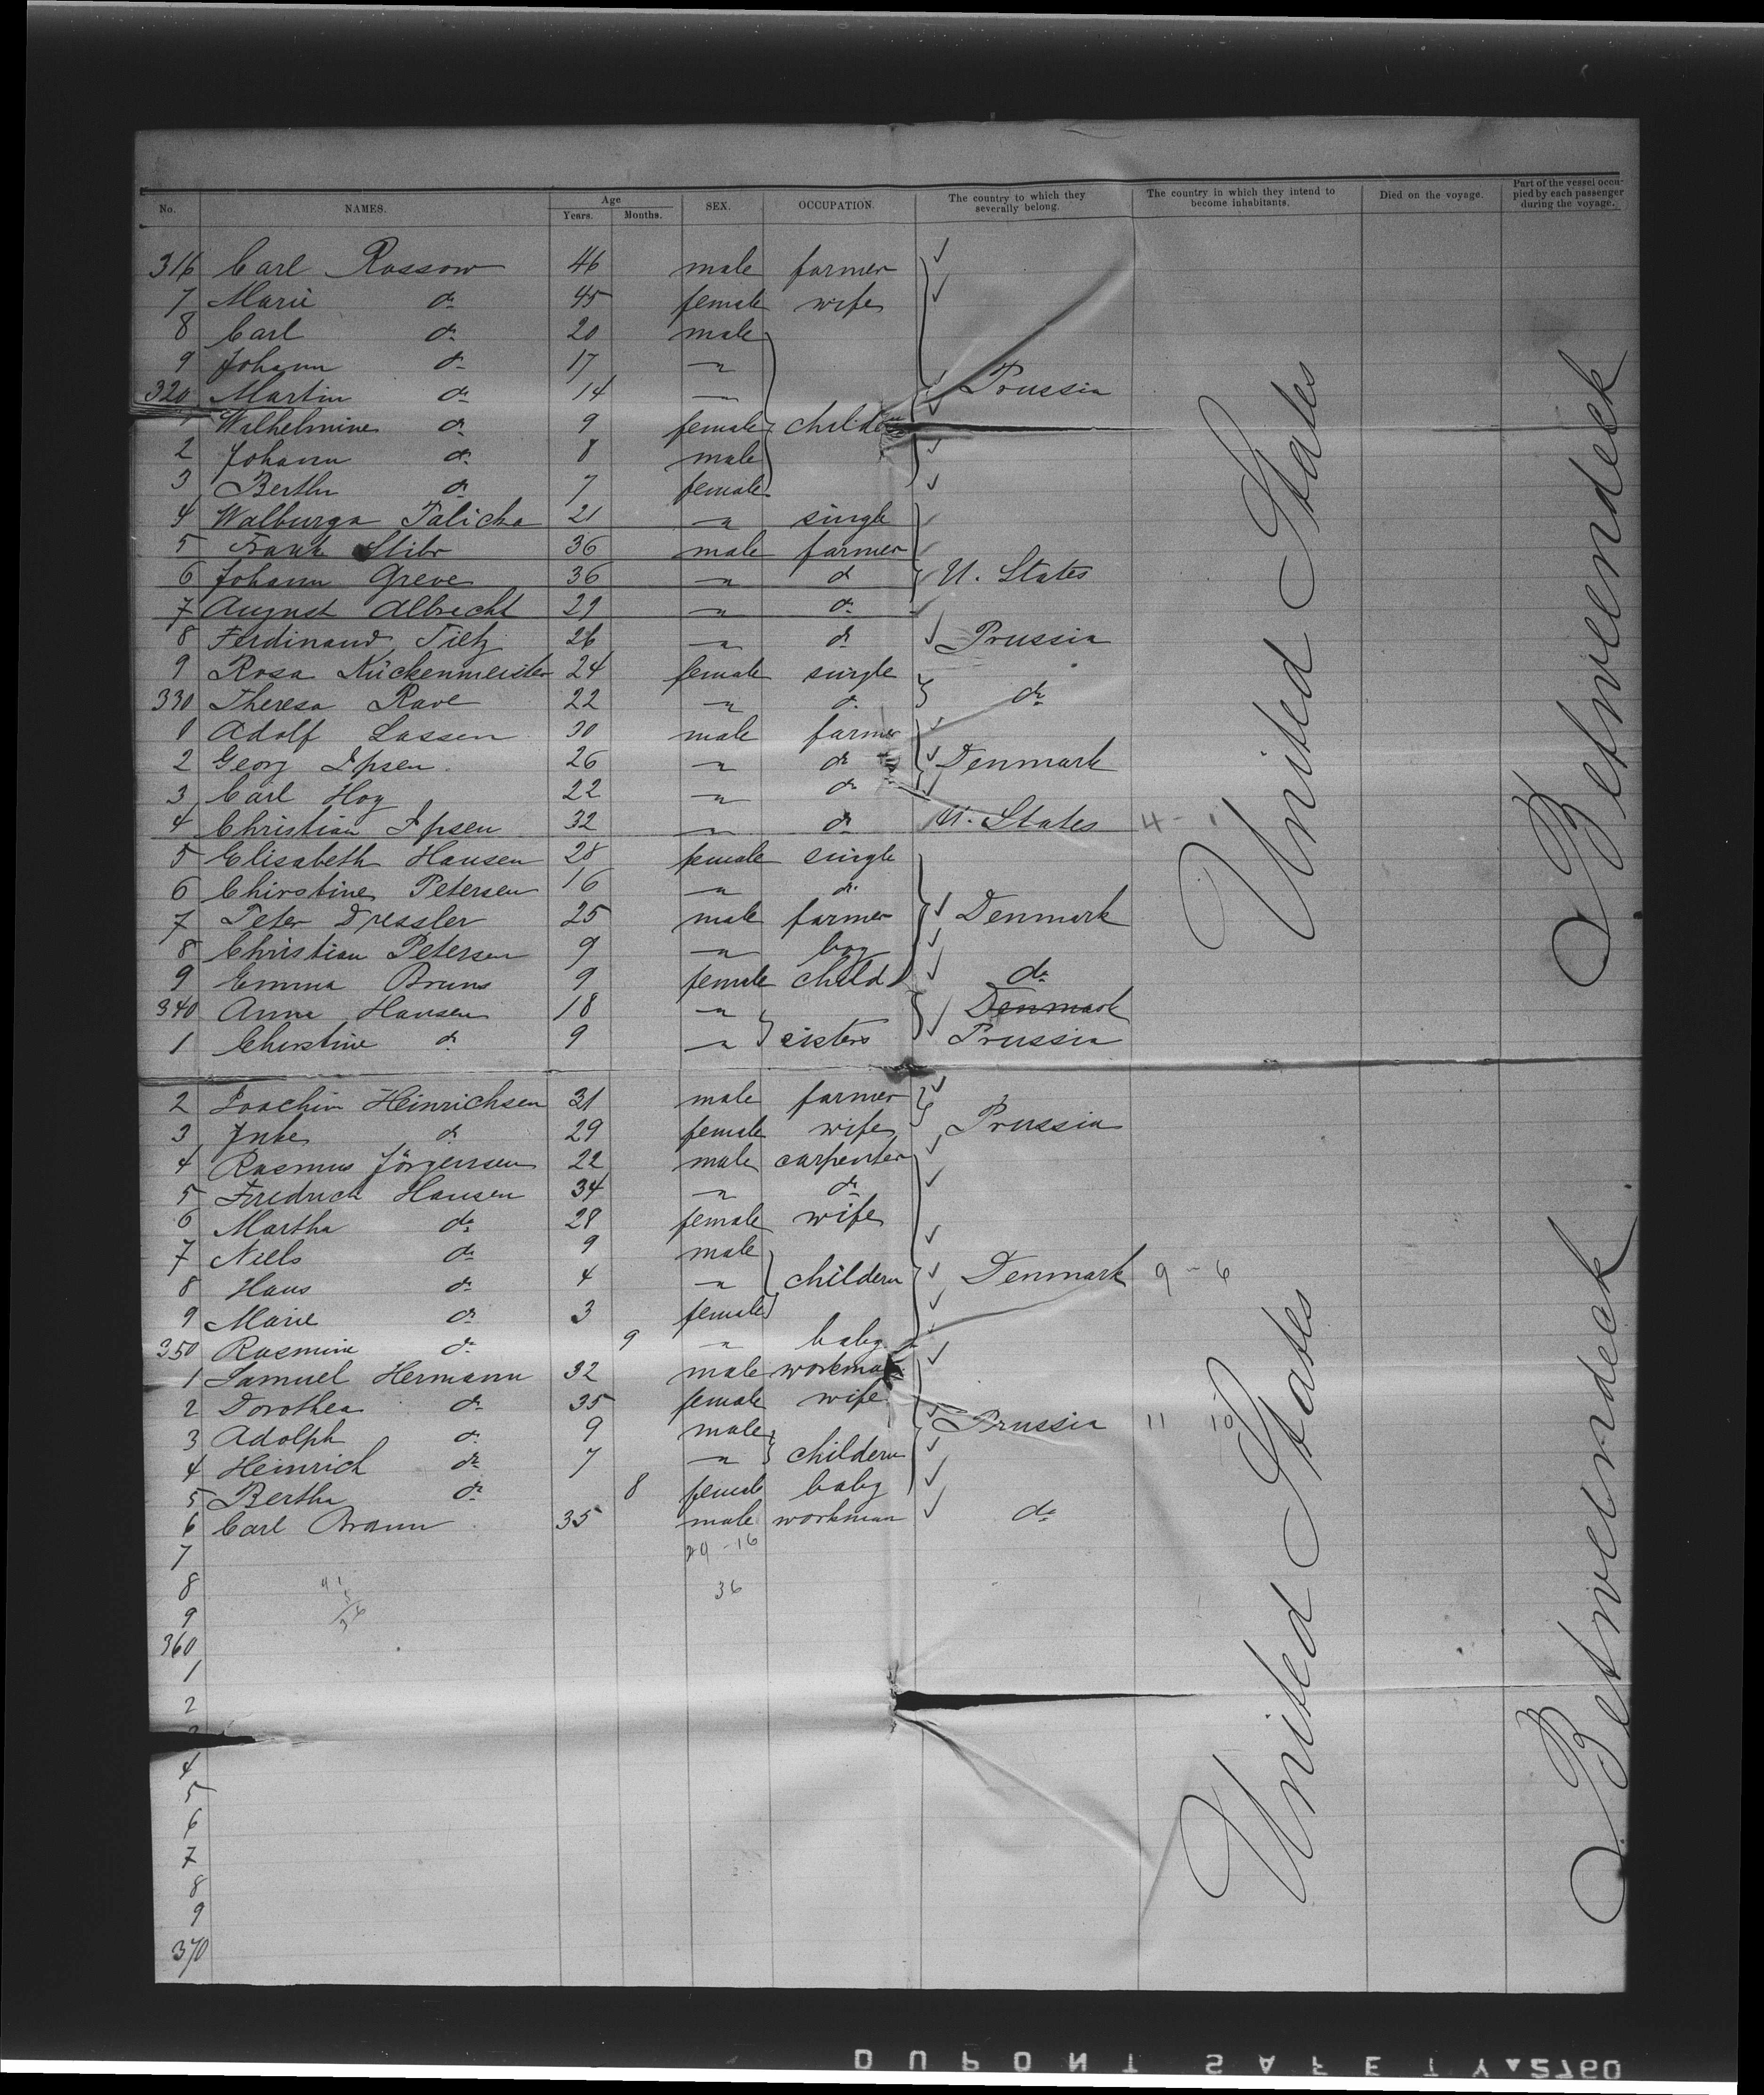 No. NAMES. Age Years. Months. SEX. OCCUPATION. The country to which they severally belong. The country in which they intend to become inhabitants. Died on the voyage. Part of the vessel occupied by each passenger during the voyage.
316 Carl Rossow 46 male farmer
7 Marie do 45 female wife
8 Carl do 20 male
9 Johann do 17 "
320 Martin do 14 " Prussia
1 Wilhelmine do 9 female
2 Johann do 8 male
3 Bertha do 7 female
4 Walburga Talicka 21 " single
5 Frank Stibr 36 male farmer
6 Johann Greve 36 " do U. States
7 August Albrecht 29 " do
8 Ferdinand Tietz 26 " do Prussia
9 Rosa Kückenmeister 24 female single
330 Theresa Rave 22 " do do
1 Adolf Lassen 30 male farmer
2 Georg Ipsen 26 " do Denmark
3 Carl Hoy 22 " do
4 Christian Ipsen 32 " do U. States 4 - 1
5 Elisabeth Hansen 28 female single
6 Chirstine Petersen 16 " do
7 Peter Dressler 25 male farmer Denmark
8 Christian Petersen 9 " boy
9 Emma Bruns 9 female child do
340 Anna Hansen 18 " Denmark
1 Cherstine do 9 " sisters Prussia
2 Joachim Heinrichsen 31 male farmer
3 Inke do 29 female wife Prussia
4 Rasmus Jörgensen 22 male carpenter
5 Fredrich Hansen 34 " do
6 Martha do 28 female wife
7 Niels do 9 male
8 Hans do 4 " childern Denmark 9 - 6
9 Marie do 3 female
350 Rasmine do 9 " baby
1 Samuel Hermann 32 male workman
2 Dorothea do 35 female wife
3 Adolph do 9 male Prussia 11 10
4 Heinrich do 7 " childern
5 Bertha do 8 female baby
6 Carl Braun 35 male workman do
7 29 - 16
8 36
9
360
1
2
4
5
6
7
8
9
370
United States
Betweendeck
United States
Betweendeck
DUPONT SAFETY 2760